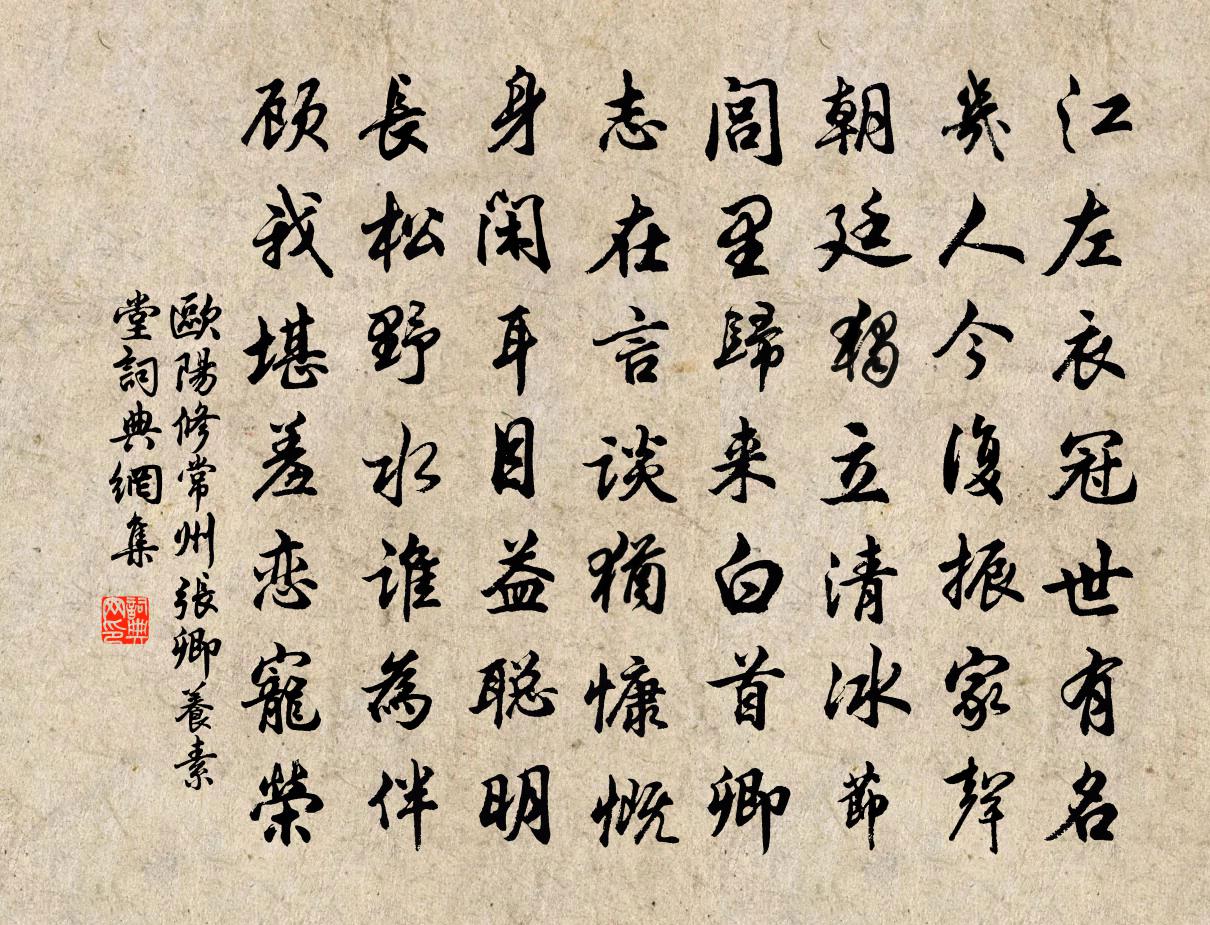 江左衣冠世有名
幾人今復振家聲
朝廷獨立清冰節
閭里歸来白首卿
志在言談猶慷慨
身閑耳目益聰明
長松野水誰為伴
顧我堪羞恋寵榮
歐陽修常州張卿養素
堂詞典網集
詞典
网印